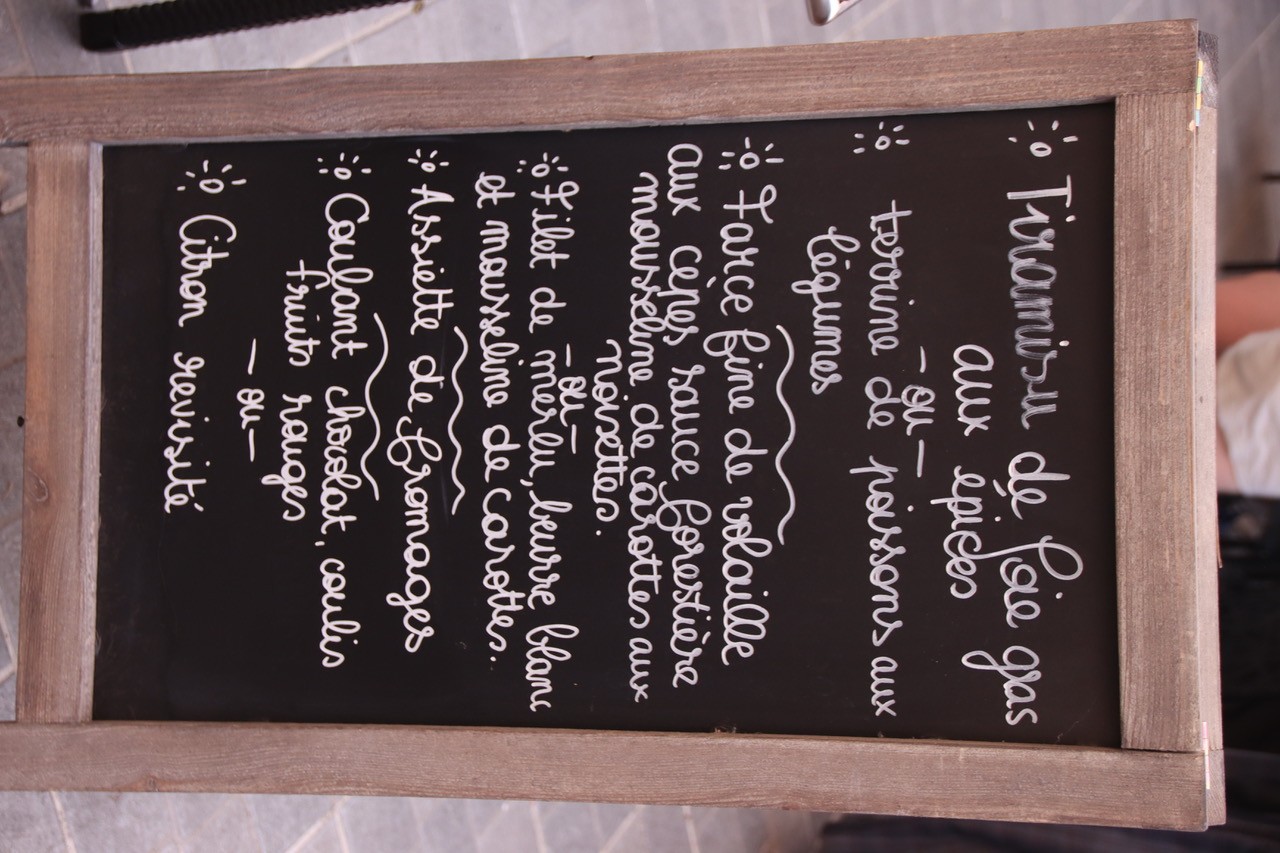 Tiramisu de foie gras
aux epices
- ou -
terrine de poissons aux
légumes
Farce fine de volaille
aux cèpes sauce forestière
mousseline de carottes aux
noisettes.
- ou -
Filet de merlu, beurre blanc
et mousseline de carottes.
Assiette de fromages
Coulant chocolat, coulis
fruits rouges
- ou -
Citron revisité